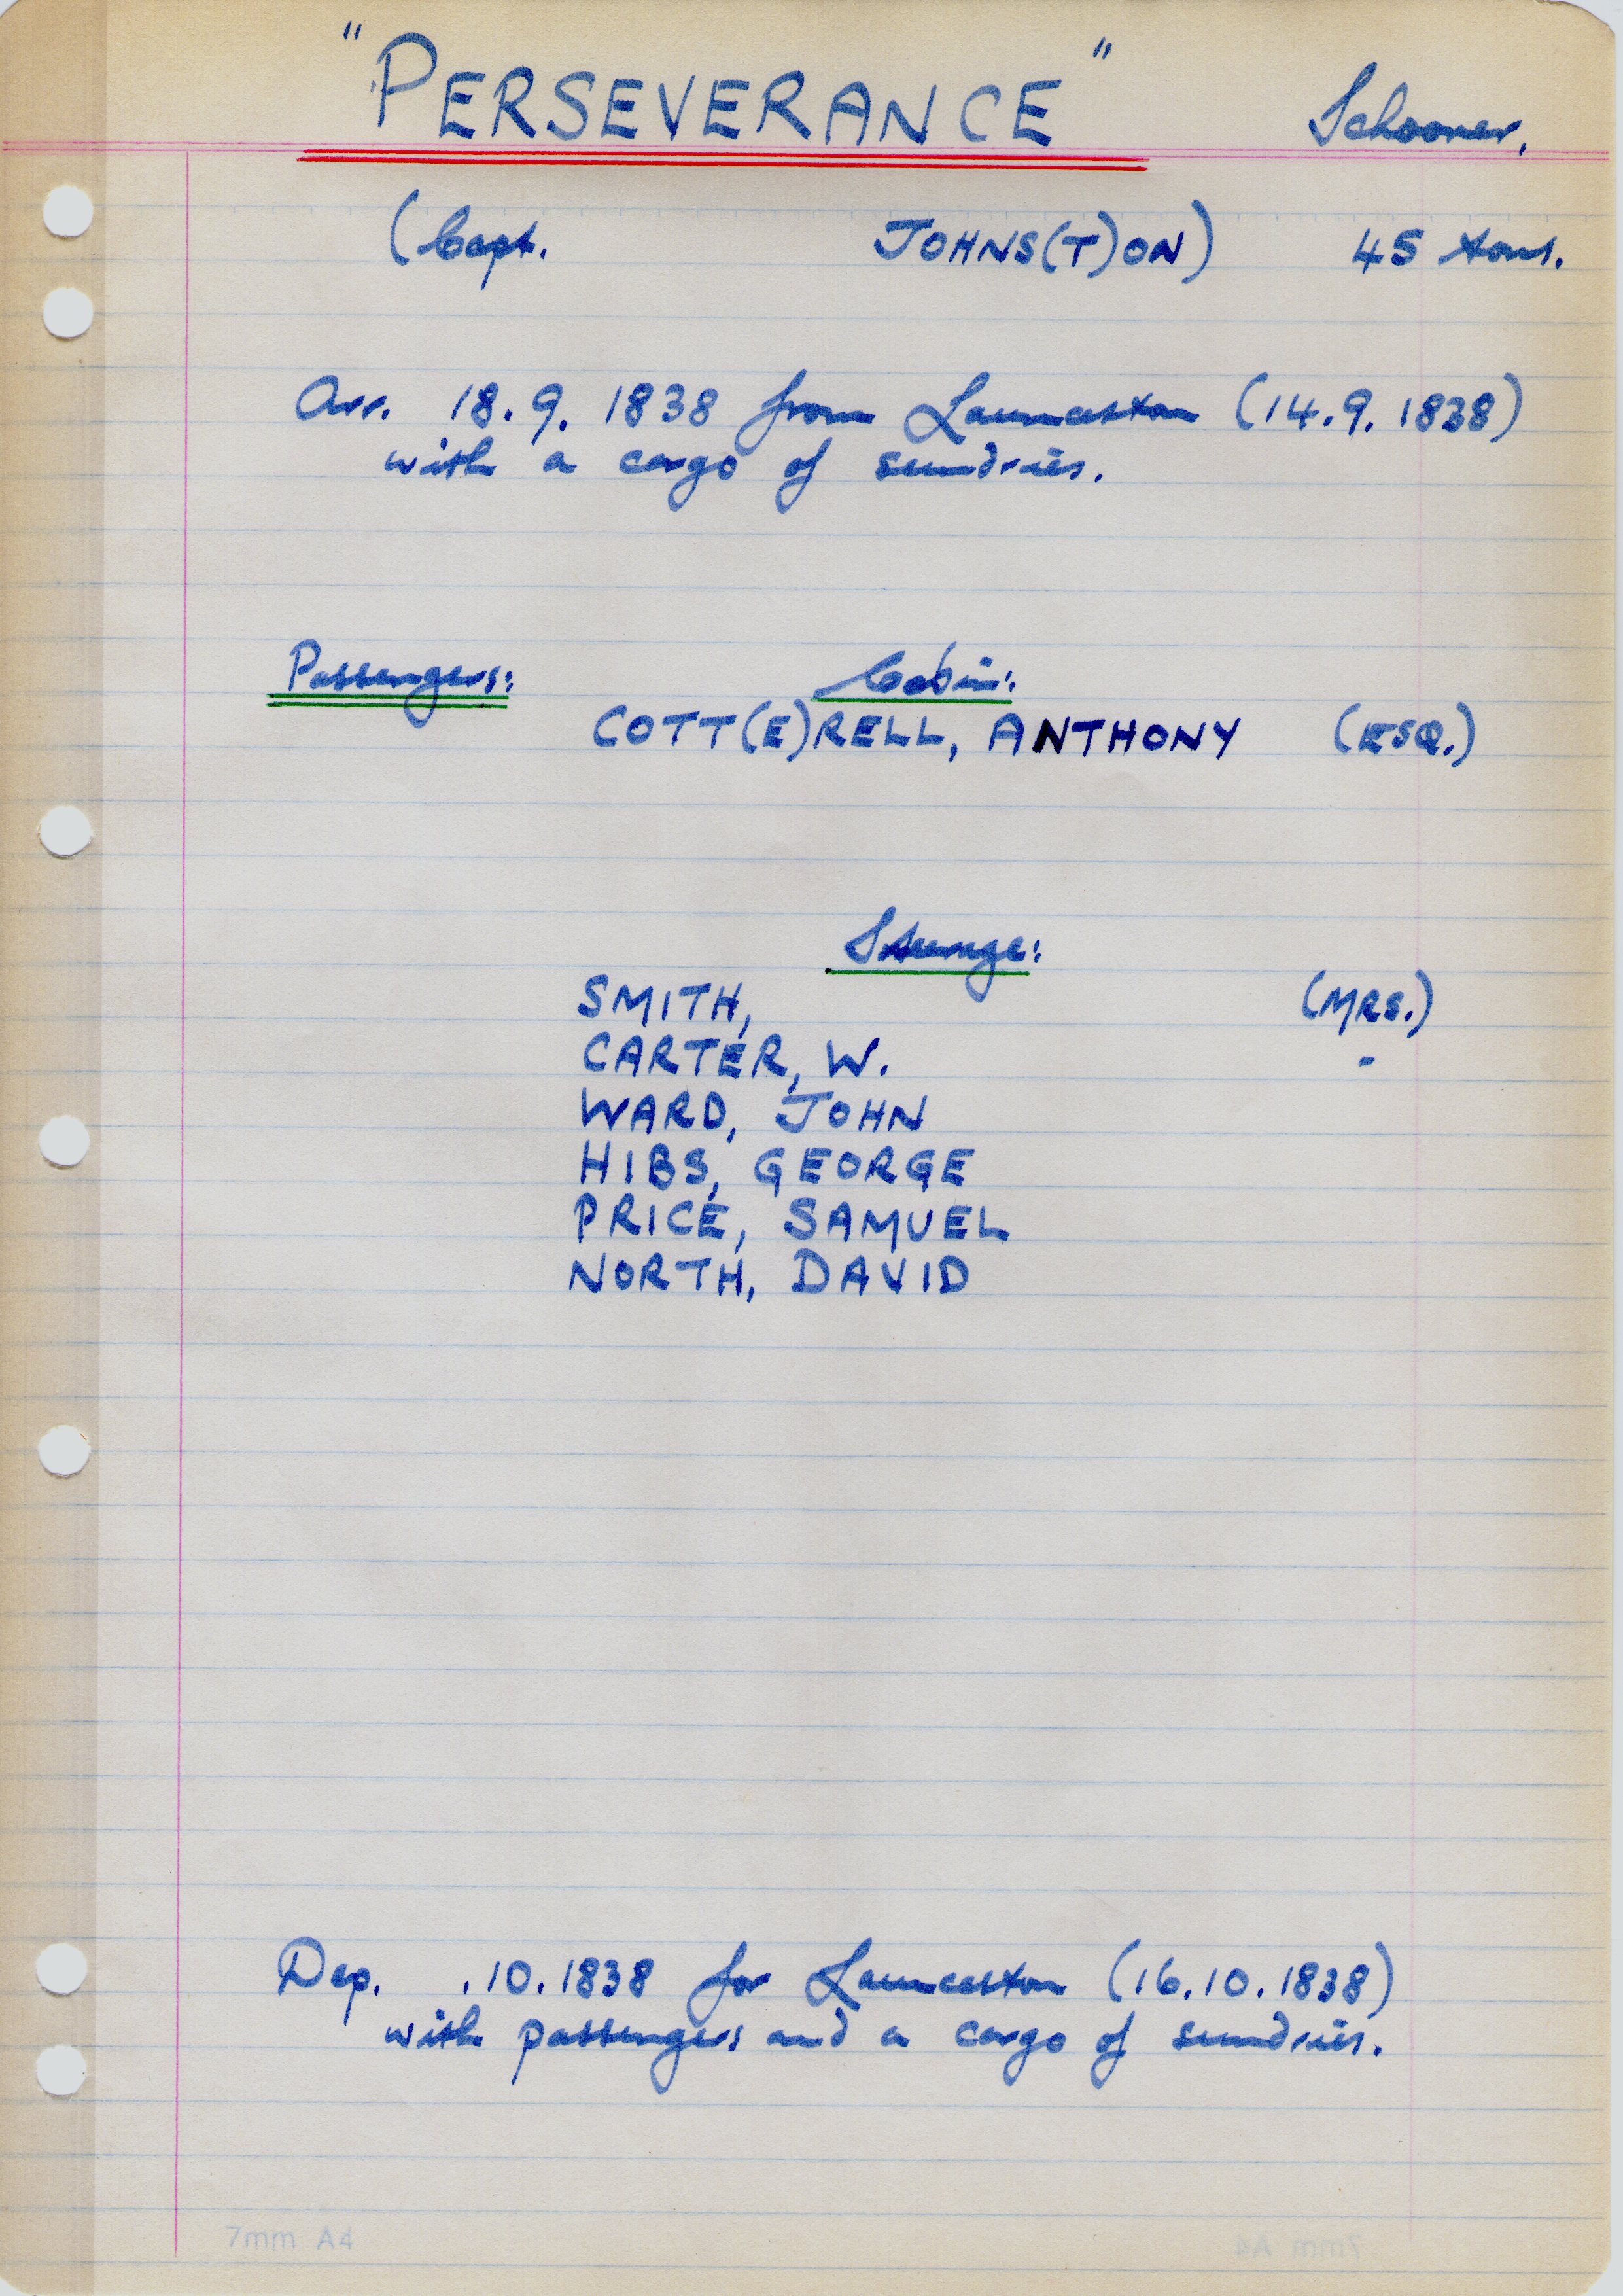 "PERSEVERANCE" Schooner,
(Capt. JOHNS(T)ON) 45 tons.
Arr. 18.9.1838 from Launceston (14.9.1838)
with a cargo of sundries.
Passengers: Cabin:
COTT(E)RELL, ANTHONY (ESQ.)
Steerage:
SMITH, (MRS.)
CARTER, W. -
WARD, JOHN
HIBS, GEORGE
PRICE, SAMUEL
NORTH, DAVID
Dep. .10.1838 for Launceston (16.10.1838)
with passengers and a cargo of sundries.
7mm A4